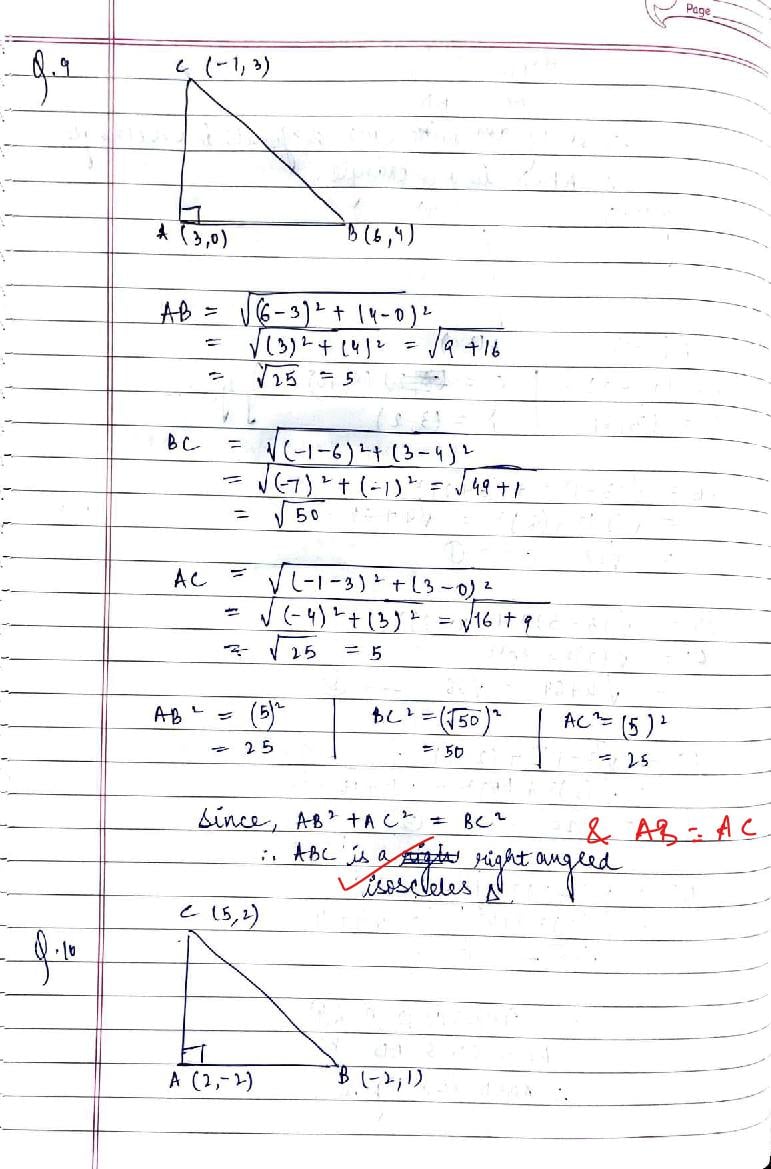 Page
Q.9
C (-1, 3)
A (3,0)
B (6,4)
AB = √(6-3)² + (4-0)²
= √(3)² + (4)² = √9 +16
= √25 = 5
BC = √(-1-6)² + (3-4)²
= √(-7)² + (-1)² = √49+1
= √50
AC = √(-1-3)² + (3-0)²
= √(-4)² + (3)² = √16 + 9
= √25 = 5
AB² = (5)² | BC² = (√50)² | AC² = (5)²
= 25 = 50 = 25
Since, AB² + AC² = BC² & AB = AC
∴ ABC is a right right angled
isosceles Δ
C (5,2)
Q.10
A (2,-2)
B (-2,1)